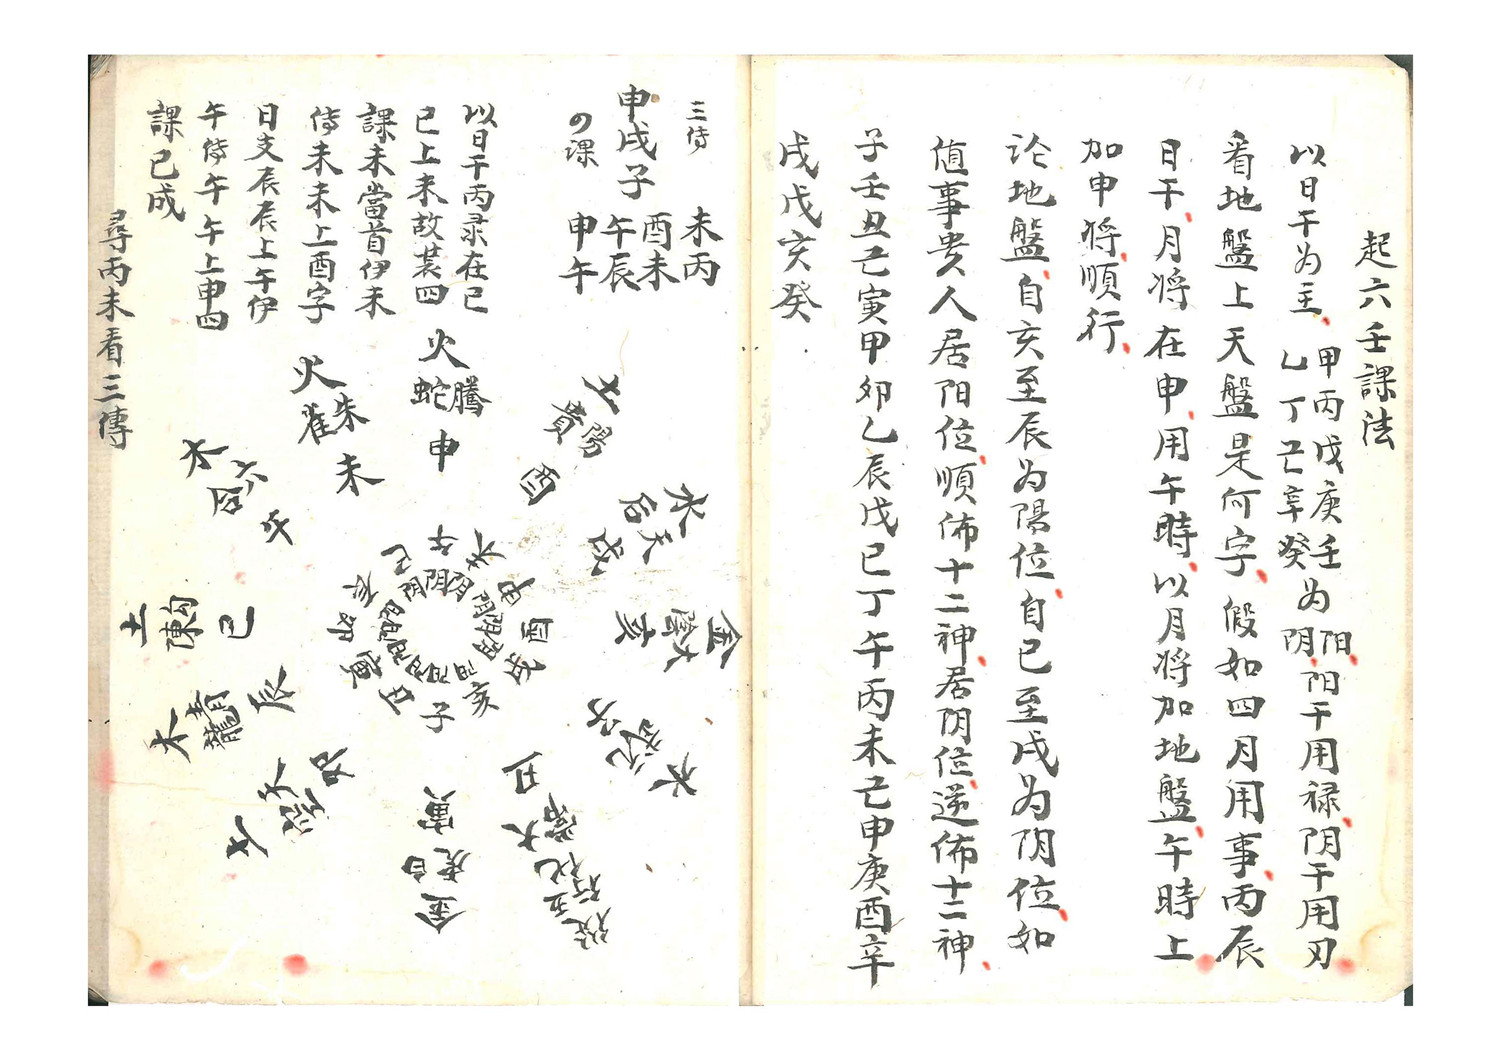 起六壬課法
以日干为主、甲丙戊庚壬为阳、
乙丁己辛癸为阴、阳干用禄阴干用刃
看地盤上天盤是何字、假如四月用事、丙辰
日干、月将在申、用午時、以月将加地盤、午時上
加申将、順行、
论地盤、自亥至辰为陽位、自巳至戌为阴位、如
值事贵人居阳位順佈十二神、居阴位、逆佈十二神、
子壬丑己寅甲卯乙辰戊巳丁午丙未己申庚酉辛
戌戊亥癸
三传
申戌子
の課
未丙
酉未
午辰
申午
以日干丙录在巳
巳上未故装四
課未當首伊未
传未未上酉字
日支辰辰上午伊
午传午午上申四
課已成
尋丙未看三傳
土
貴陽
酉
火
螣蛇
申
火
朱雀
未
木
六
午
土
勾陳
巳
木
青龍
辰
土
天空
卯
金
白虎
寅
大常
丑
水
玄武
子
金
太陰
亥
水
天后
戌
巳
午
未
申
酉
戌
亥
子
丑
寅
卯
辰